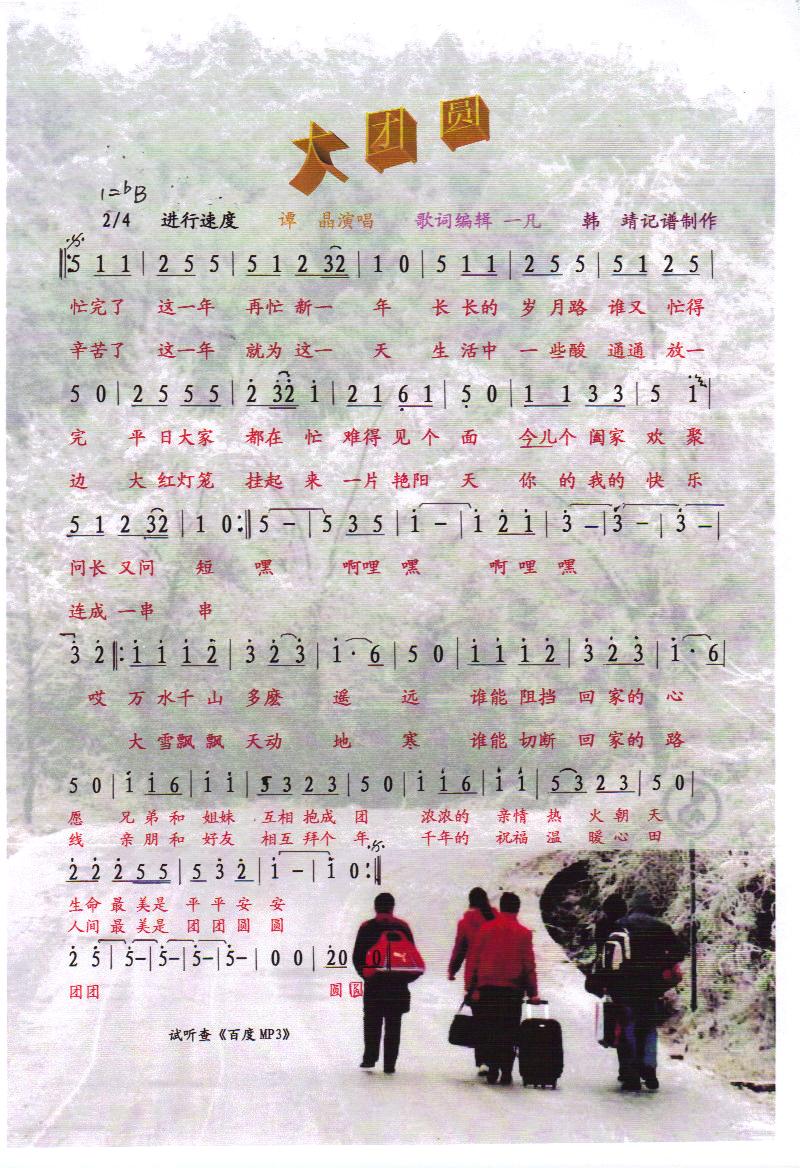 大团圆
1=♭B
2/4 进行速度 谭 晶演唱 歌词编辑 一凡 韩 靖记谱制作
5 1 1 | 2 5 5 | 5 1 2 32 | 1 0 | 5 1 1 | 2 5 5 | 5 1 2 5 |
忙完了 这一年 再忙 新一 年 长 长的 岁 月路 谁又 忙得
辛苦了 这一年 就为 这一 天 生 活中 一 些酸 通通 放一
5 0 | 2 5 5 5 | 2 32 1 | 2 1 6 1 | 5 0 | 1 1 3 3 | 5 1 |
完 平 日大家 都在 忙 难得 见 个 面 今儿个 阖家 欢 聚
边 大 红灯笼 挂起 来 一片 艳阳 天 你 的 我的 快 乐
5 1 2 32 | 1 0 :‖ 5 – | 5 3 5 | 1 – | 1 2 1 | 3 – | 3 – | 3 – |
问长 又问 短 嘿 啊哩 嘿 啊 哩 嘿
连成 一串 串
3 2 ‖: 1 1 1 2 | 3 2 3 | 1 · 6 | 5 0 | 1 1 1 2 | 3 2 3 | 1 · 6 |
哎 万 水千 山 多麽 遥 远 谁能 阻挡 回 家的 心
大 雪飘飘 天动 地 寒 谁能 切断 回 家的 路
5 0 | 1 1 6 | 1 1 | 5 3 2 3 | 5 0 | 1 1 6 | 1 1 | 5 3 2 3 | 5 0 |
愿 兄 弟 和 姐妹 互相 抱成 团 浓浓的 亲情 热 火 朝 天
线 亲 朋 和 好友 相互 拜个 年 千年的 祝福 温 暖 心 田
2 2 2 5 5 | 5 3 2 | 1 – | 1 0 :‖
生命 最 美是 平 平 安 安
人间 最 美是 团 团 圆 圆
2 5 | 5– | 5– | 5– | 5– | 0 0 | 20 0
团团 圆 圆
试听查《百度 MP3》